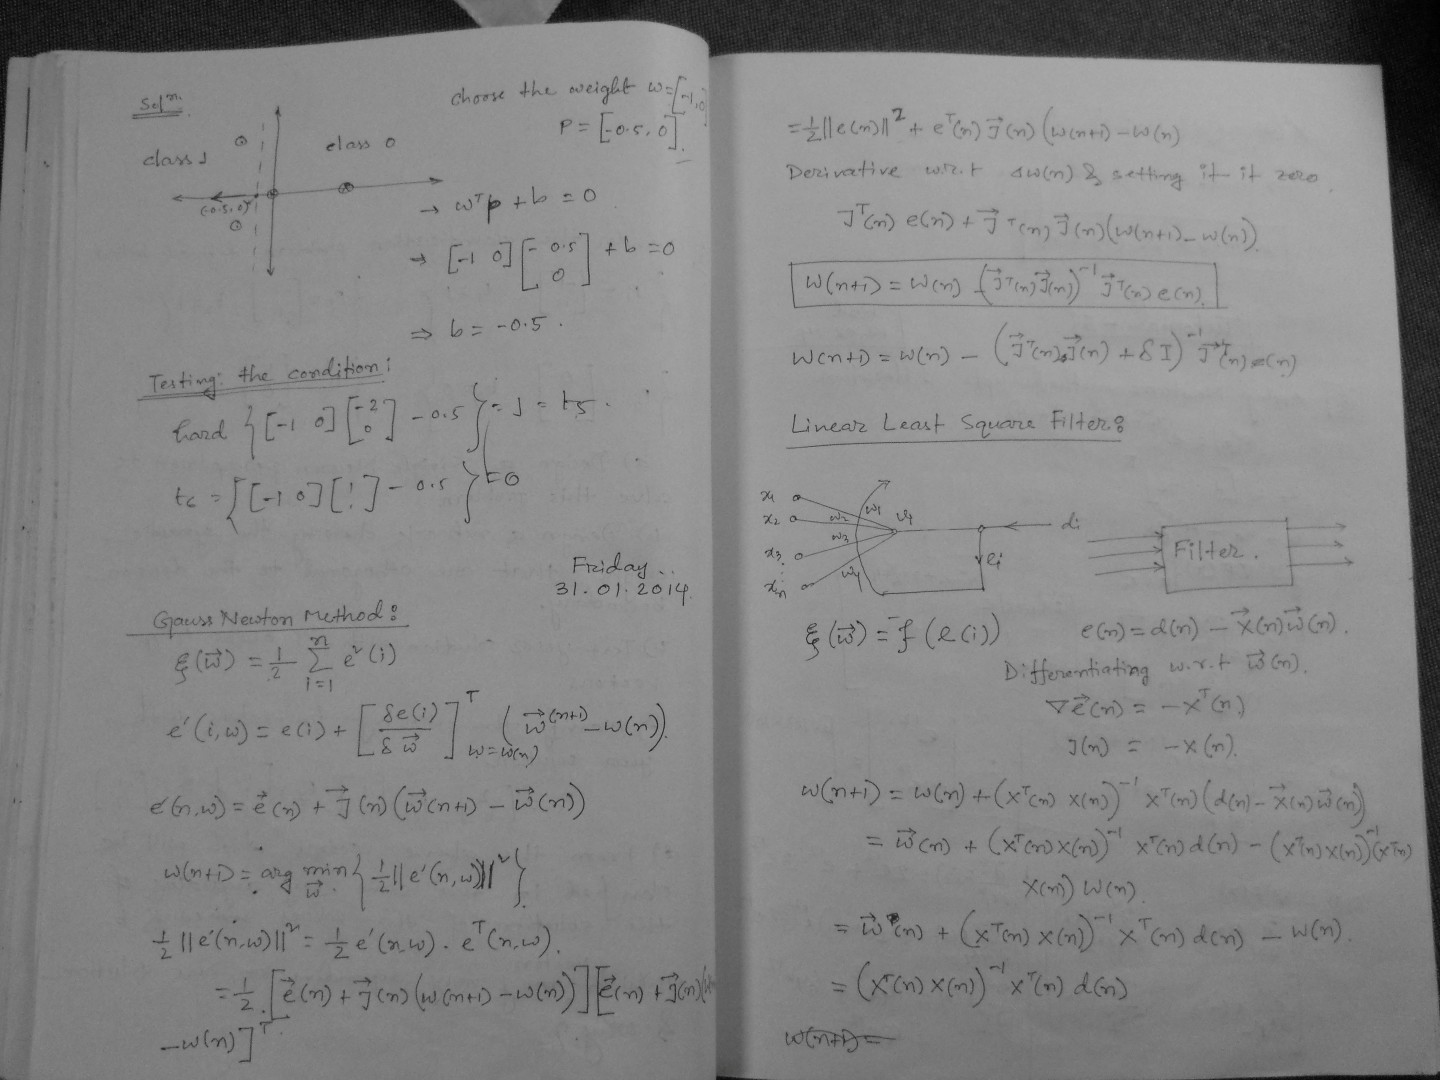 Solⁿ.
choose the weight w=[-1,0]
P = [-0.5, 0].
class 1
class 0
(-0.5, 0)
→ wᵀp + b = 0
→ [-1 0] [-0.5 0] + b = 0
⇒ b = -0.5 .
Testing the condition:
hard { [-1 0] [-2 0] - 0.5 } = 1 = t5 .
t6 = { [-1 0] [1 1] - 0.5 } = 0
Friday
31.01.2014
Gauss Newton Method:
ξ(w⃗) = 1/2 Σ_{i=1}^{n} e²(i)
e'(i,w) = e(i) + [δe(i)/δw⃗]ᵀ_{w=w(n)} (w⃗(n+1) - w(n)).
e'(n,w) = e⃗(n) + J⃗(n) (w⃗(n+1) - w⃗(n))
w(n+1) = arg min_{w⃗} { 1/2 ||e'(n,w)||² }
1/2 ||e'(n,w)||² = 1/2 e'(n,w) . eᵀ(n,w).
= 1/2 [e⃗(n) + J⃗(n) (w(n+1) - w(n))] [e⃗(n) + J⃗(n)(w
- w(n)]ᵀ
= 1/2 ||e(n)||² + eᵀ(n) J⃗(n) (w(n+1) - w(n)
Derivative w.r.t Δw(n) & setting it it zero.
Jᵀ(n) e(n) + J⃗ᵀ(n) J⃗(n) (w(n+1) - w(n)).
w(n+1) = w(n) - (J⃗ᵀ(n) J⃗(n))⁻¹ J⃗ᵀ(n) e(n).
w(n+1) = w(n) - (J⃗ᵀ(n) J⃗(n) + δI)⁻¹ J⃗ᵀ(n) e(n)
Linear Least Square Filter:
x1
x2
x3
xn
w1
w2
w3
w4
di
ei
Filter.
ξ(w⃗) = f(e(i))
e(n) = d(n) - X⃗(n) w⃗(n).
Differentiating w.r.t w⃗(n).
∇e⃗(n) = -xᵀ(n)
J(n) = -x(n).
w(n+1) = w(n) + (xᵀ(n) x(n))⁻¹ xᵀ(n) (d(n) - x⃗(n) w⃗(n))
= w⃗(n) + (xᵀ(n) x(n))⁻¹ xᵀ(n) d(n) - (xᵀ(n) x(n))⁻¹ (xᵀ(n)
x(n)) w(n).
= w⃗(n) + (xᵀ(n) x(n))⁻¹ xᵀ(n) d(n) - w(n).
= (xᵀ(n) x(n))⁻¹ xᵀ(n) d(n)
w(n+1) =